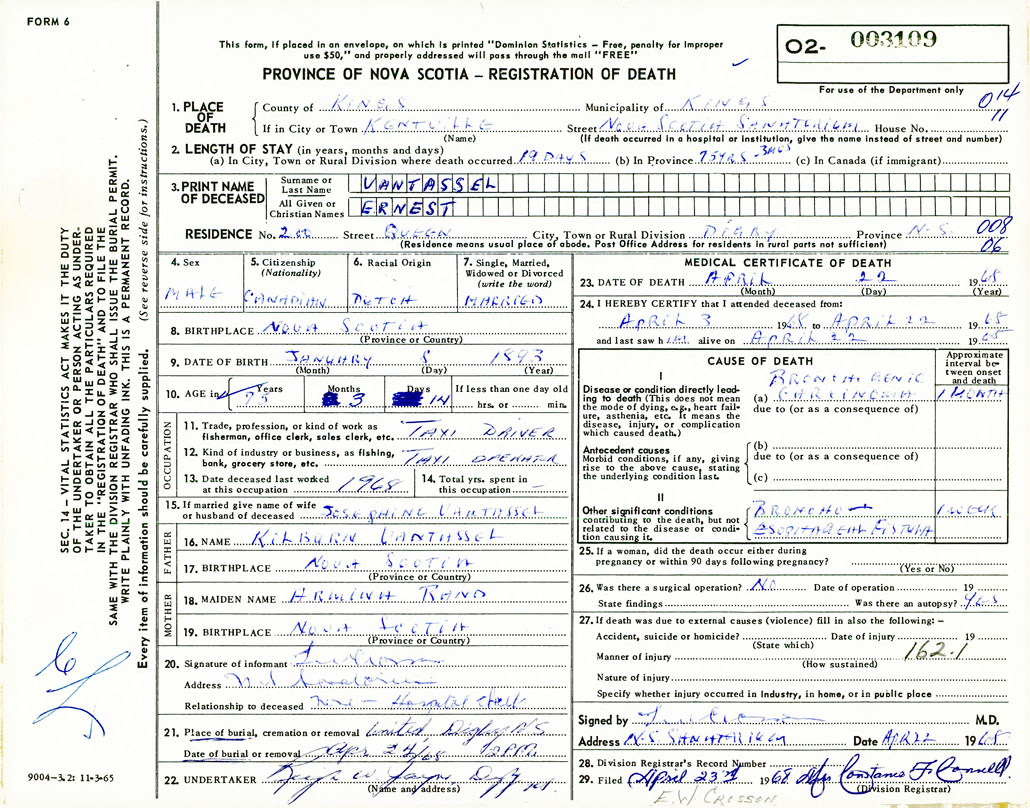 FORM 6
This form, if placed in an envelope, on which is printed "Dominion Statistics – Free, penalty for improper
use $50," and properly addressed will pass through the mail "FREE"
PROVINCE OF NOVA SCOTIA – REGISTRATION OF DEATH
O2- 003109
For use of the Department only
014
11
1. PLACE OF DEATH
County of KINGS Municipality of KINGS
If in City or Town KENTVILLE Street NOVA SCOTIA SANATORIUM House No.
(Name) (If death occurred in a hospital or institution, give the name instead of street and number)
2. LENGTH OF STAY (in years, months and days)
(a) In City, Town or Rural Division where death occurred 19 DAYS (b) In Province 75 YRS - 3 MOS (c) In Canada (if immigrant)
3. PRINT NAME OF DECEASED
Surname or Last Name VANTASSEL
All Given or Christian Names ERNEST
RESIDENCE No. 200 Street QUEEN City, Town or Rural Division DIGBY Province N.S. 008
(Residence means usual place of abode. Post Office Address for residents in rural parts not sufficient) 06
4. Sex MALE
5. Citizenship (Nationality) CANADIAN
6. Racial Origin DUTCH
7. Single, Married, Widowed or Divorced (write the word) MARRIED
8. BIRTHPLACE NOVA SCOTIA
(Province or Country)
9. DATE OF BIRTH JANUARY 8 1893
(Month) (Day) (Year)
10. AGE in Years 75 Months 3 Days 14 If less than one day old
hrs. or min.
OCCUPATION
11. Trade, profession, or kind of work as
fisherman, office clerk, sales clerk, etc. TAXI DRIVER
12. Kind of industry or business, as fishing,
bank, grocery store, etc. TAXI OPERATOR
13. Date deceased last worked
at this occupation 1968
14. Total yrs. spent in
this occupation –
15. If married give name of wife
or husband of deceased JOSEPHINE VANTASSEL
FATHER
16. NAME KILBURN VANTASSEL
17. BIRTHPLACE NOVA SCOTIA
(Province or Country)
MOTHER
18. MAIDEN NAME ARMINA RAND
19. BIRTHPLACE NOVA SCOTIA
(Province or Country)
20. Signature of informant
Address N S Sanatorium
Relationship to deceased None – Hospital Staff
21. Place of burial, cremation or removal United, Digby N.S.
Date of burial or removal Apr 24/68 2 P.M.
22. UNDERTAKER
(Name and address)
MEDICAL CERTIFICATE OF DEATH
23. DATE OF DEATH APRIL 22 1968
(Month) (Day) (Year)
24. I HEREBY CERTIFY that I attended deceased from:
APRIL 3 1968 to APRIL 22 1968
and last saw him alive on APRIL 22 1968
CAUSE OF DEATH
Approximate interval between onset and death
I
Disease or condition directly leading to death (This does not mean the mode of dying, e.g., heart failure, asthenia, etc. It means the disease, injury, or complication which caused death.)
(a) BRONCHOGENIC CARCINOMA 1 MONTH
due to (or as a consequence of)
Antecedent causes
Morbid conditions, if any, giving rise to the above cause, stating the underlying condition last.
(b)
due to (or as a consequence of)
(c)
II
Other significant conditions contributing to the death, but not related to the disease or condition causing it.
BRONCHO –
ESOPHAGEAL FISTULA 1 WEEK
25. If a woman, did the death occur either during
pregnancy or within 90 days following pregnancy?
(Yes or No)
26. Was there a surgical operation? NO Date of operation 19
State findings Was there an autopsy? YES
27. If death was due to external causes (violence) fill in also the following: –
Accident, suicide or homicide? Date of injury 19
(State which)
Manner of injury 162.1
(How sustained)
Nature of injury
Specify whether injury occurred in industry, in home, or in public place
Signed by M.D.
Address N.S. SANATORIUM Date APRIL 1968
28. Division Registrar's Record Number
29. Filed April 23rd 1968 Mrs Constance F. Connell
(Division Registrar)
E.W CROSSON
SEC. 14 – VITAL STATISTICS ACT MAKES IT THE DUTY
OF THE UNDERTAKER OR PERSON ACTING AS UNDER-
TAKER TO OBTAIN ALL THE PARTICULARS REQUIRED
IN THE "REGISTRATION OF DEATH" AND TO FILE THE
SAME WITH THE DIVISION REGISTRAR WHO SHALL ISSUE THE BURIAL PERMIT.
WRITE PLAINLY WITH UNFADING INK. THIS IS A PERMANENT RECORD.
Every item of information should be carefully supplied. (See reverse side for instructions.)
9004–3.2: 11-3-65